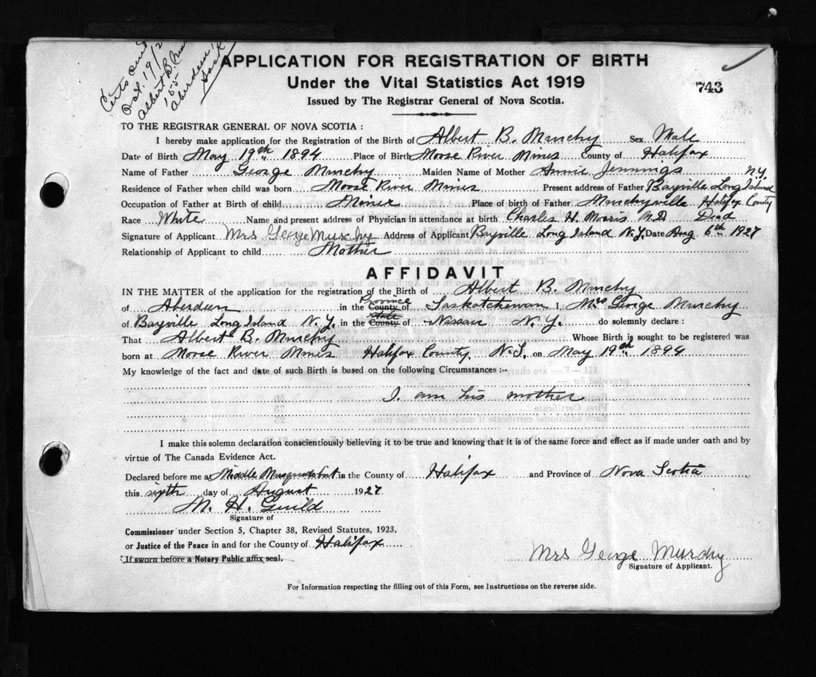 APPLICATION FOR REGISTRATION OF BIRTH
Under the Vital Statistics Act 1919
743
Issued by The Registrar General of Nova Scotia.
Oct. 19/2
Albert B.
Aberdeen,
Sask
TO THE REGISTRAR GENERAL OF NOVA SCOTIA :
I hereby make application for the Registration of the Birth of Albert B. Murchy Sex Male
Date of Birth May 19th 1894 Place of Birth Moose River Mines County of Halifax
Name of Father George Murchy Maiden Name of Mother Annie Jennings N.Y.
Residence of Father when child was born Moose River Mines Present address of Father Bayville Long Island
Occupation of Father at Birth of child Miner Place of birth of Father Murchyville Halifax County
Race White Name and present address of Physician in attendance at birth Charles H. Morris M.D Dead
Signature of Applicant Mrs George Murchy Address of Applicant Bayville, Long Island N.Y. Date Aug 6th 1927
Relationship of Applicant to child Mother
AFFIDAVIT
IN THE MATTER of the application for the registration of the Birth of Albert B. Murchy
of Aberdeen in the Province County of Saskatchewan ; Mrs George Murchy
of Bayville, Long Island N.Y. in the State County of Nassau N.Y. do solemnly declare :
That Albert B. Murchy Whose Birth is sought to be registered was
born at Moose River Mines Halifax County N.S. on May 19th 1894
My knowledge of the fact and date of such Birth is based on the following Circumstances :-
I am his mother
I make this solemn declaration conscientiously believing it to be true and knowing that it is of the same force and effect as if made under oath and by
virtue of The Canada Evidence Act.
Declared before me at Middle Musquodoboit in the County of Halifax and Province of Nova Scotia
this sixth day of August 1927
M. H. Guild
Signature of
Commissioner under Section 5, Chapter 38, Revised Statutes, 1923,
or Justice of the Peace in and for the County of Halifax
If sworn before a Notary Public affix seal.
Mrs George Murchy
Signature of Applicant.
For Information respecting the filling out of this Form, see Instructions on the reverse side.